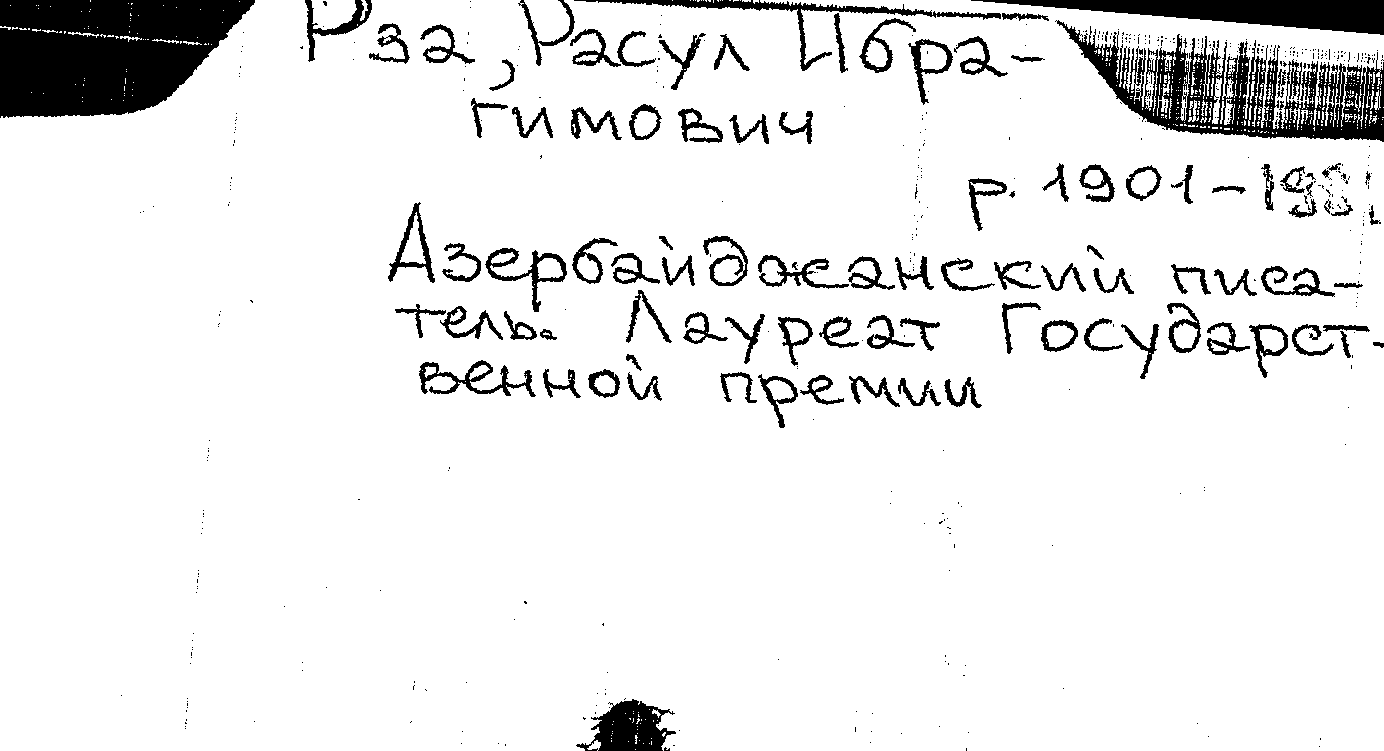 Рза, Расул Ибра-
гимович
р. 1901-1981
Азербайджанский писа-
тель. Лауреат Государст-
венной премии